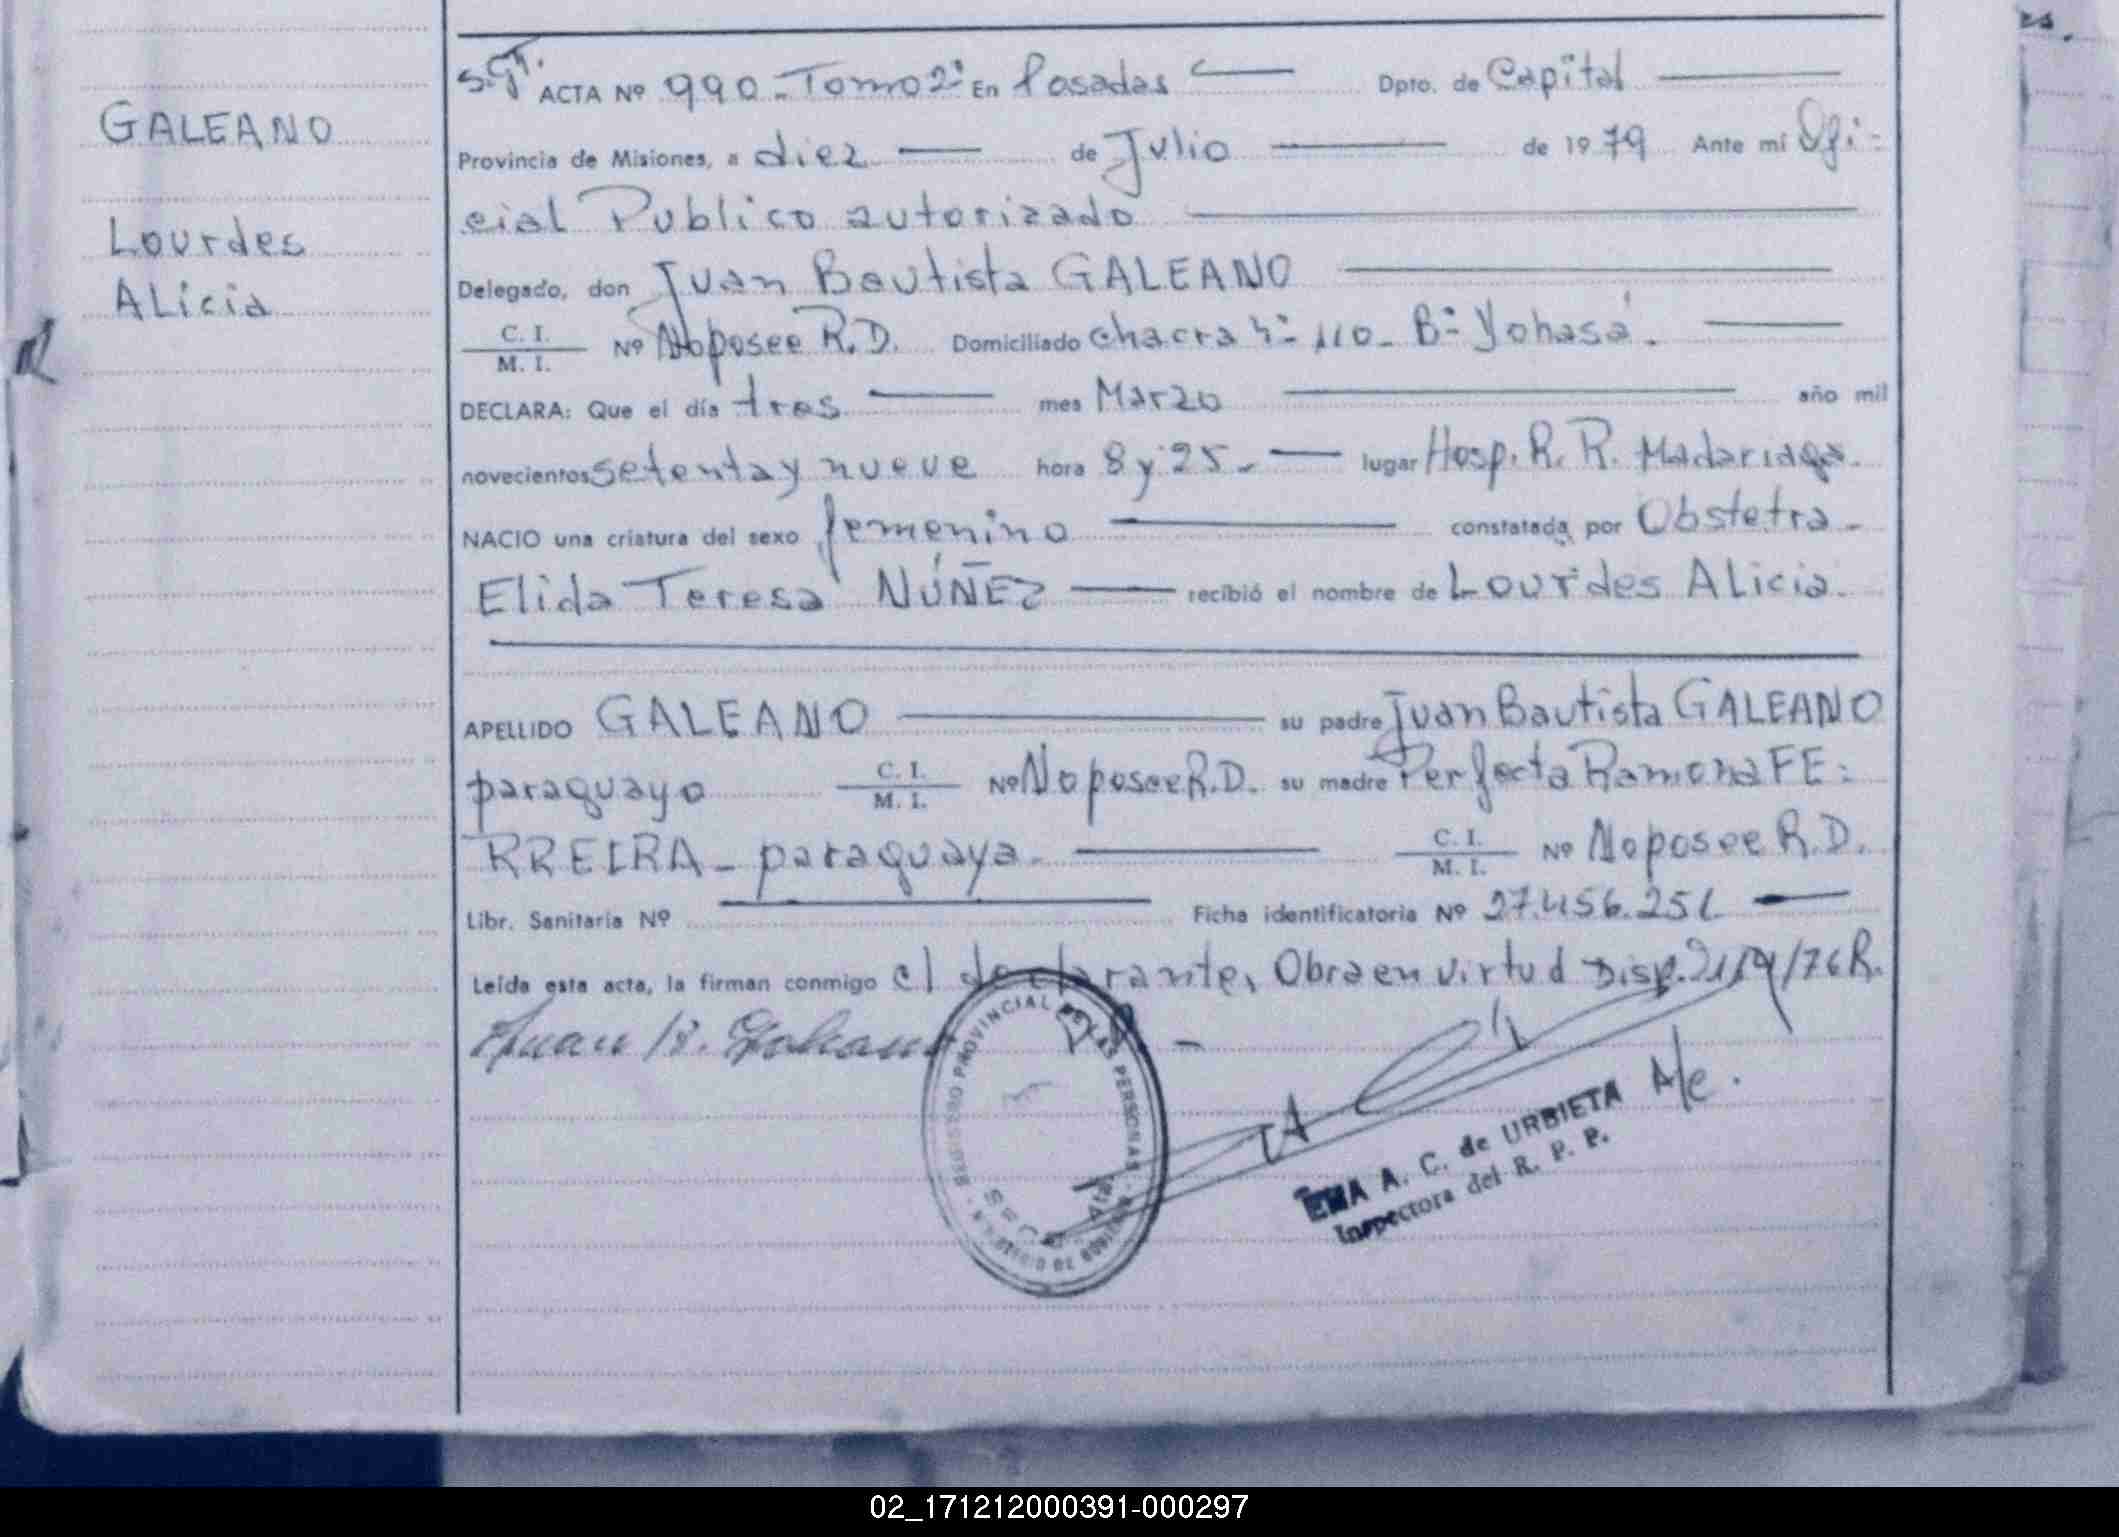 es.
S.G.T. ACTA Nº 990 - Tomo 2º En Posadas Dpto. de Capital
GALEANO
Provincia de Misiones, a diez de Julio de 1979 Ante mí Ofi=
cial Publico autorizado
Lourdes
Delegado, don Juan Bautista GALEANO
ALicia
C. I.
M. I. Nº No posee R.D. Domiciliado chacra 110 - Bº Yohasá.
DECLARA: Que el día tres mes Marzo año mil
novecientos setenta y nueve hora 8 y 25 - lugar Hosp. R. R. Madariaga.
NACIO una criatura del sexo femenino constatada por Obstetra -
Elida Teresa NÚÑEZ recibió el nombre de Lourdes ALicia.
APELLIDO GALEANO su padre Juan Bautista GALEANO
paraguayo C. I.
M. I. Nº No posee R.D. su madre Perfecta Ramona FE=
RREIRA - paraguaya. C. I.
M. I. Nº No posee R.D.
Libr. Sanitaria Nº Ficha identificatoria Nº 27.456.251
Leída esta acta, la firman conmigo el declarante, Obra en virtud Disp. /76 R.
Juan B. Galeano
REGISTRO PROVINCIAL DE LAS PERSONAS
A/c.
EMA A. C. de URBIETA
Inspectora del R. P. P.
02_171212000391-000297